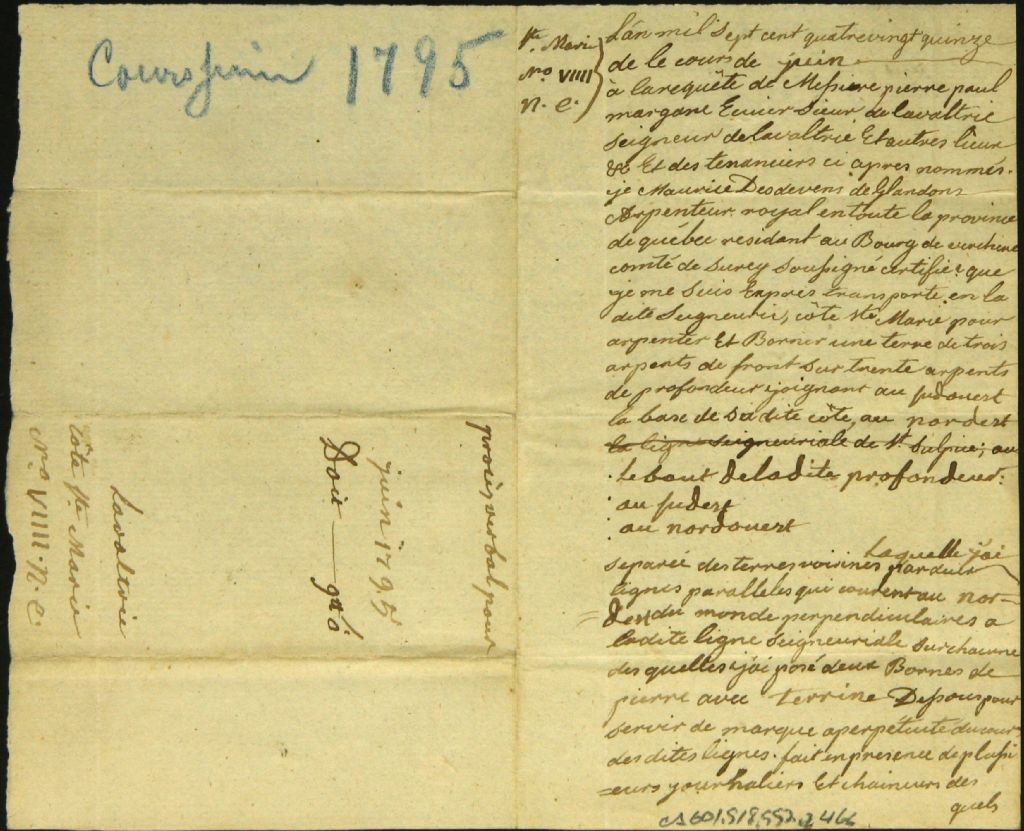 Cours juin 1795
Ste. Marie
No VIIII
N. C.
L'an mil Sept cent quatrevingt quinze
de le cours de juin
à la requête de Messiere pierre paul
margane Ecuier Sieur de lavaltrie
Seigneur de lavaltrie Et autres lieux
&c Et des tenanciers ci apres nommés.
je Maurice Desdevens de Glandons
Arpenteur royal en toute la province
de québec residant au Bourg de
comté de Surey Soussigné certifie que
je me Suis Expres transporté en la
dite Seigneurie, côte Ste Marie pour
arpenter Et Borner une terre de trois
arpents de front Sur trente arpents
de profondeur joignant au Sudouest
la base de Sa dite côte, au nordest
la ligne Seigneuriale de St. Sulpice; au
le bout de ladite profondeur.
au Sudest
au nordouest
Laquelle j'ai
Separée des terres voisines par deux
lignes paralleles qui courent au Nor-
=dest du monde perpendiculaires a
ladite ligne Seigneuriale Sur chacune
des quelles j'ai posé deux Bornes de
pierre avec terrine Dessous pour
Servir de marque a perpétuité du cour
des dites lignes. fait en presence de plusi
=eurs journaliers Et chaineurs des
quels
procès verbal pour
juin 1795
Doit
Lavaltrie
Côte Ste. Marie
No VIIII. N. C.